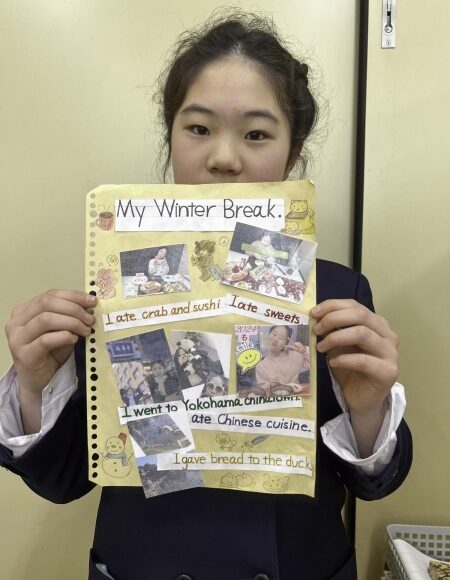 My Winter Break.
I ate crab and sushi
I ate sweets
2024
I went to Yokohama chinatown.
ate Chinese cuisine.
I gave bread to the duck